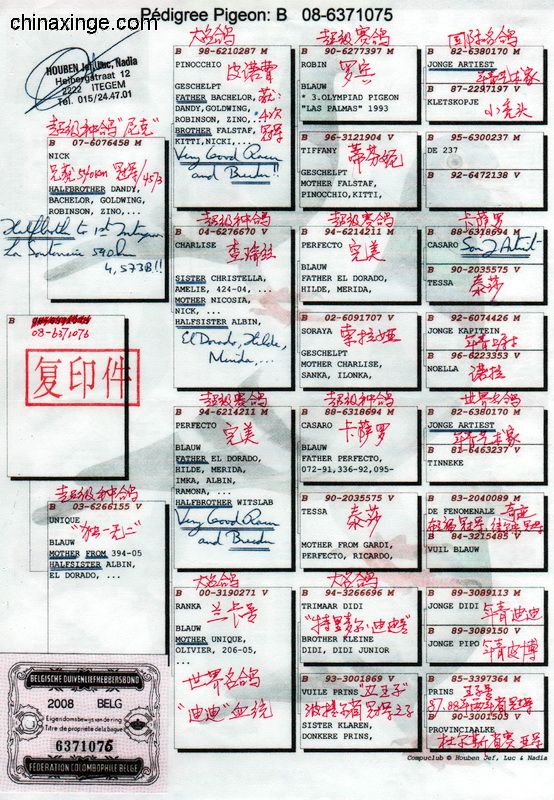 www.chinaxinge.com
Pédigree Pigeon: B 08-6371075
HOUBEN Jef, Luc, Nadia
Heibergstraat 12
2222 ITEGEM
Tel. 015/24.47.01
超级种鸽"尼克"
B 07-6076458 M
NICK
冠军/4573
HALFBROTHER DANDY,
BACHELOR, GOLDWING,
ROBINSON, ZINO,...
4,573B!!
B
08-6371076
复印件
超级种鸽
B 03-6266155 V
UNIQUE
"独一无二"
BLAUW
MOTHER FROM 394-05
HALFSISTER ALBIN,
EL DORADO, ...
BELGISCHE DUIVENLIEFHEBBERSBOND
2008 BELG
Eigendomsbewijs van de ring
Titre de propriété de la bague
6371075
FEDERATION COLOMBOPHILE BELGE
大名鸽
B 98-6210287 M
PINOCCHIO
皮诺曹
GESCHELPT
FATHER BACHELOR,
DANDY, GOLDWING,
ROBINSON, ZINO,..
4次
冠军
BROTHER FALSTAF,
KITTI, NICKI,...
Very Good Racer
and Breeder!!
超级种鸽
B 04-6276670 V
CHARLISE
查璃丝
SISTER CHRISTELLA,
AMELIE, 424-04, ...
MOTHER NICOSIA,
NICK, ...
HALFSISTER ALBIN,
El Dorado, Hilde,
Merida, ...
超级赛鸽
B 94-6214211 M
PERFECTO
完美
BLAUW
FATHER EL DORADO,
HILDE, MERIDA,
IMKA, ALBIN,
RAMONA, ...
HALFBROTHER WITSLAB
Very Good Racer
and Breeder
大名鸽
B 00-3190271 V
RANKA
兰卡号
BLAUW
MOTHER UNIQUE,
OLIVIER, 206-05,
...
世界名鸽
"迪迪"血统
超级赛鸽
B 90-6277397 M
ROBIN
罗宾
BLAUW
" 3.OLYMPIAD PIGEON
"LAS PALMAS" 1993
B 96-3121904 V
TIFFANY
蒂芬妮
GESCHELPT
MOTHER FALSTAF,
PINOCCHIO, KITTI,
超级赛鸽
B 94-6214211 M
PERFECTO
完美
BLAUW
FATHER EL DORADO,
HILDE, MERIDA,
B 02-6091707 V
SORAYA
索拉娅
GESCHELPT
MOTHER CHARLISE,
SANKA, ILONKA,
超级种鸽
B 88-6318694 M
CASARO
卡萨罗
BLAUW
FATHER PERFECTO,
072-91,336-92,095-
B 90-2035575 V
TESSA
泰莎
BLAUW
MOTHER FROM GARDI,
PERFECTO, RICARDO,
大名鸽
B 94-3266696 M
TRIMAAR DIDI
"特里麦尔·迪迪号"
BROTHER KLEINE
DIDI, DIDI JUNIOR
B 93-3001869 V
VUILE PRINS
SISTER KLAREN,
DONKERE PRINS,
国际名鸽
B 82-6380170 M
JONGE ARTIEST
年青艺术家
B 87-2297197 V
KLETSKOPJE
小秃头
B 95-6300237 M
DE 237
B 92-6472138 V
卡萨罗
B 88-6318694 M
CASARO
Son J Artist
B 90-2035575 V
TESSA
泰莎
B 92-6074426 M
JONGE KAPITEIN
B 96-6223353 V
NOELLA
诺拉
世界名鸽
B 82-6380170 M
JONGE ARTIEST
年青艺术家
B 81-6463237 V
TINNEKE
B 83-2040089 M
DE FENOMENALE
奇迹
B 84-3215485 V
VUIL BLAUW
B 89-3089113 M
JONGE DIDI
年青迪迪
B 89-3089150 V
JONGE PIPO
年青皮博
B 85-3397364 M
PRINS
王子号
B 90-3001503 V
PROVINCIAALKE
Compuclub © Houben Jef, Luc & Nadia